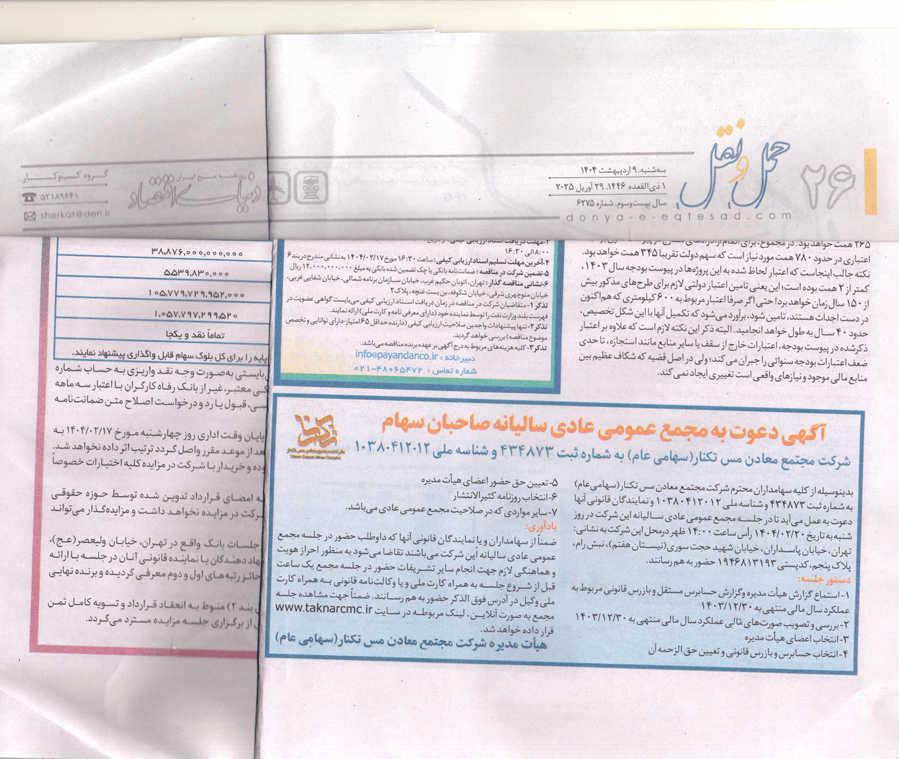 ۲۶
حمل و نقل
سه‌شنبه ۹ اردیبهشت ۱۴۰۴
۱ ذی‌القعده ۱۴۴۶، ۲۹ آوریل ۲۰۲۵
سال بیست‌وسوم، شماره ۶۲۷۵
donya-e-eqtesad.com
دنیای اقتصاد
گروه کسب‌وکار
۵۲۱۸۹۶۴۱
sherkat@den.ir
۲۶۵ همت خواهد بود. در مجموع، برای
اعتباری در حدود ۷۸۰ همت مورد نیاز است که سهم دولت تقریبا ۳۴۵ همت خواهد بود.
نکته جالب اینجاست که اعتبار لحاظ شده به این پروژه‌ها در پیوست بودجه سال ۱۴۰۳،
کمتر از ۲ همت بوده است، این یعنی تامین اعتبار دولتی لازم برای طرح‌های مذکور بیش
از ۱۵۰ سال زمان خواهد برد! حتی اگر صرفا اعتبار مربوط به ۶۰۰ کیلومتری که هم‌اکنون
در دست احداث هستند، تامین شود، برآورد می‌شود که تکمیل آنها با این شکل تخصیص،
حدود ۴۰ سال به طول خواهد انجامید. البته ذکر این نکته لازم است که علاوه بر اعتبار
ذکرشده در پیوست بودجه، اعتبارات خارج از سقف یا سایر منابع مانند استجازه، تا حدی
ضعف اعتبارات بودجه سنواتی را جبران می‌کند، ولی در اصل قضیه که شکاف عظیم بین
منابع مالی موجود و نیازهای واقعی است تغییری ایجاد نمی‌کند.
۳-مهلت دریافت اسناد ارزیابی کیفی:
۸:۰۰ الی ۱۶:۳۰
۴-آخرین مهلت تسلیم اسناد ارزیابی کیفی: ساعت ۱۶:۳۰ مورخ ۱۴۰۴/۰۲/۱۷ به نشانی مندرج در بند ۶
۵-تضمین شرکت در مناقصه: ضمانت‌نامه بانکی یا چک تضمین شده بانکی به مبلغ ۱۲،۰۰۰،۰۰۰،۰۰۰ ریال
۶-نشانی مناقصه گذار: تهران، اتوبان حکیم غرب، خیابان سازمان برنامه شمالی، خیابان شقایی غربی،
خیابان منوچهری شرقی، خیابان شکوفه، بن بست غنچه، پلاک ۲
تذکر ۱-متقاضیان شرکت در مناقصه در زمان دریافت اسناد ارزیابی کیفی می‌بایست گواهی عضویت در
فهرست بلند وزارت نفت را توسط نماینده خود (دارای معرفی نامه و کارت ملی) ارائه نمایند.
تذکر ۲-تنها پیشنهادات واجدین صلاحیت ارزیابی کیفی (دارنده حداقل ۶۵ امتیاز-دارای توانایی و تخصص
موضوع مناقصه) بررسی خواهد گردید.
تذکر ۳-کلیه هزینه‌های مربوط به درج آگهی بر عهده برنده مناقصه می‌باشد.
دبیرخانه: info@payandanco.ir
شماره تماس: ۴۸۰۶۵۴۷۲-۰۲۱
۳۸،۸۷۶،۰۰۰،۰۰۰،۰۰۰
۵۵۳۹،۸۳۰،۰۰۰
۱۰۵،۷۷۹،۷۲۹،۹۵۲،۰۰۰
۱،۰۵۷،۷۹۷،۲۹۹،۵۲۰
تماماً نقد و یکجا
پایه را برای کل بلوک سهام قابل واگذاری پیشنهاد نمایند.
بایستی به‌صورت وجه نقد واریزی به حساب شماره
معتبر، غیر از بانک رفاه کارگران با اعتبار سه ماهه
سی، قبول یا رد و درخواست اصلاح متن ضمانت‌نامه
پایان وقت اداری روز چهارشنبه مورخ ۱۴۰۴/۰۲/۱۷ به
عد از موعد مقرر واصل گردد ترتیب اثر داده نخواهد شد.
وده و خریدار با شرکت در مزایده کلیه اختیارات خصوصاً
ه امضای قرارداد تدوین شده توسط حوزه حقوقی
رکت در مزایده نخواهد داشت و مزایده‌گذار می‌تواند
جلسات بانک واقع در تهران، خیابان ولیعصر(عج)،
هاد دهندگان یا نماینده قانونی آنان در جلسه با ارائه
حائز رتبه‌های اول و دوم معرفی گردیده و برنده نهایی
بند ۲) منوط به انعقاد قرارداد و تسویه کامل ثمن
از برگزاری جلسه مزایده مسترد می‌گردد.
آگهی دعوت به مجمع عمومی عادی سالیانه صاحبان سهام
شرکت مجتمع معادن مس تکنار(سهامی عام) به شماره ثبت ۴۳۴۸۷۳ و شناسه ملی ۱۰۳۸۰۴۱۲۰۱۲
بدینوسیله از کلیه سهامداران محترم شرکت مجتمع معادن مس تکنار(سهامی‌عام)
به شماره ثبت ۴۳۴۸۷۳ و شناسه ملی ۱۰۳۸۰۴۱۲۰۱۲ و نمایندگان قانونی آنها
دعوت به عمل می‌آید تا در جلسه مجمع عمومی عادی سالیانه این شرکت در روز
شنبه به تاریخ ۱۴۰۴/۰۲/۲۰ رأس ساعت ۱۴:۰۰ ظهر در محل این شرکت به نشانی:
تهران، خیابان پاسداران، خیابان شهید حجت سوری(نیستان هفتم)، نبش رام،
پلاک پنجم، کدپستی ۱۹۴۶۸۱۳۱۹۲ حضور به هم رسانند.
دستور جلسه:
۱-استماع گزارش هیأت مدیره و گزارش حسابرس مستقل و بازرس قانونی مربوط به
عملکرد سال مالی منتهی به ۱۴۰۳/۱۲/۳۰
۲-بررسی و تصویب صورت‌های مالی عملکرد سال مالی منتهی به ۱۴۰۳/۱۲/۳۰
۳-انتخاب اعضای هیأت مدیره
۴-انتخاب حسابرس و بازرس قانونی و تعیین حق الزحمه آن
۵-تعیین حق حضور اعضای هیأت مدیره
۶-انتخاب روزنامه کثیرالانتشار
۷-سایر مواردی که در صلاحیت مجمع عمومی عادی می‌باشد.
یادآوری:
ضمناً از سهامداران و یا نمایندگان قانونی آنها که داوطلب حضور در جلسه مجمع
عمومی عادی سالیانه این شرکت می‌باشند تقاضا می‌شود به منظور احراز هویت
و هماهنگی لازم جهت انجام سایر تشریفات حضور در جلسه مجمع یک ساعت
قبل از شروع جلسه به همراه کارت ملی و یا وکالت‌نامه قانونی به همراه کارت
ملی وکیل در آدرس فوق الذکر حضور به هم رسانند. ضمناً جهت مشاهده جلسه
مجمع به صورت آنلاین، لینک مربوطه در سایت www.taknarcmc.ir
قرار داده خواهد شد.
هیأت مدیره شرکت مجتمع معادن مس تکنار(سهامی عام)